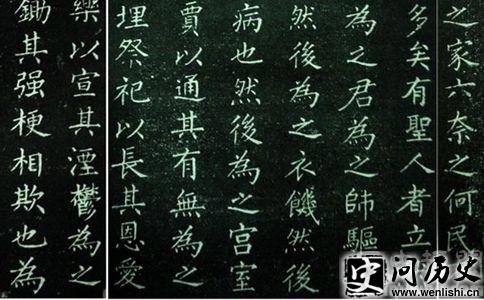 之家六奈之何民
多矣有聖人者立
為之君為之師驅
然後為之衣饑然後
病也然後為之宮室
賈以通其有無為之
埋祭祀以長其恩愛
樂以宣其湮鬱為之
鋤其强梗相欺也為
史问历史
www.wenlishi.cn